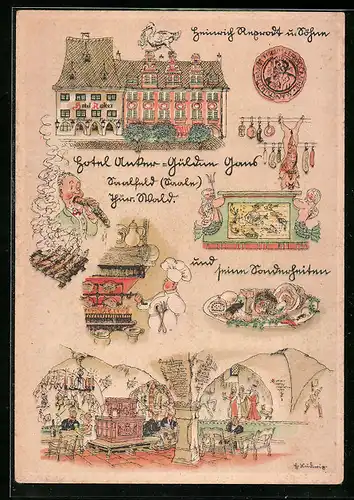 Heinrich Reprodt u. Söhne
Hotel Anker
Hotel Anker = Güldne Gans
Saalfeld (Saale)
Thür. Wald.
und
seine Sonderheiten
Ludwig